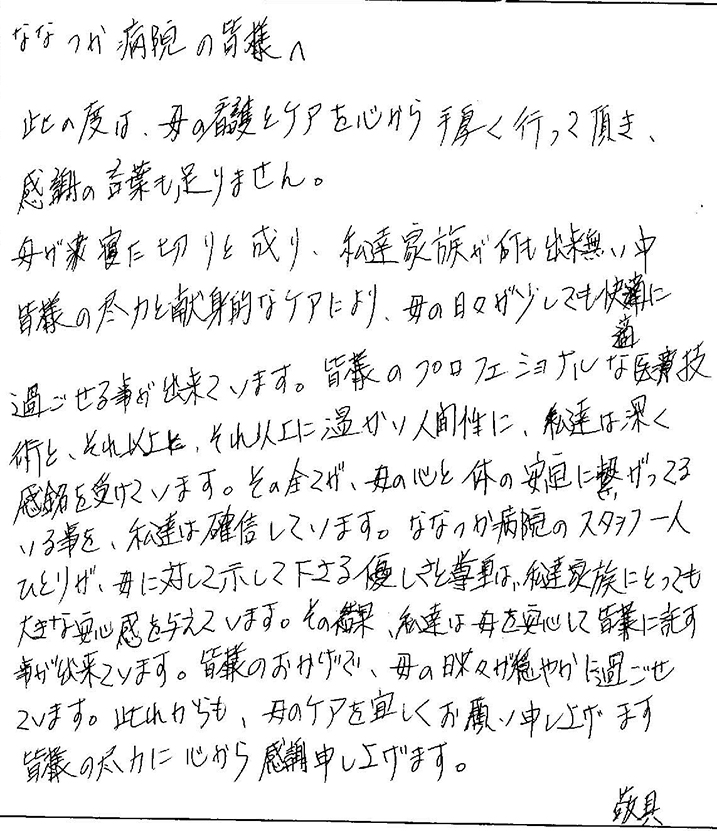 ななつか病院の皆様へ
此の度は、母の看護とケアを心から手厚く行って頂き、
感謝の言葉も足りません。
母が寝た切りと成り、私達家族が何も出来無い中
皆様の尽力と献身的なケアにより、母の日々が少しでも快適に
過ごせる事が出来ています。皆様のプロフェショナルな医療技
術と、それ以上に、それ以上に温かい人間性に、私達は深く
感銘を受けています。その全てが、母の心と体の安定に繋がってる
いる事を、私達は確信しています。ななつか病院のスタッフ一人
ひとりが、母に対して示して下さる優しさと尊重は、私達家族にとっても
大きな安心感を与えています。その結果、私達は母を安心して皆様に託す
事が出来ています。皆様のおかげで、母の日々が穏やかに過ごせ
ています。此れからも、母のケアを宜しくお願い申し上げます
皆様の尽力に心から感謝申し上げます。
敬具